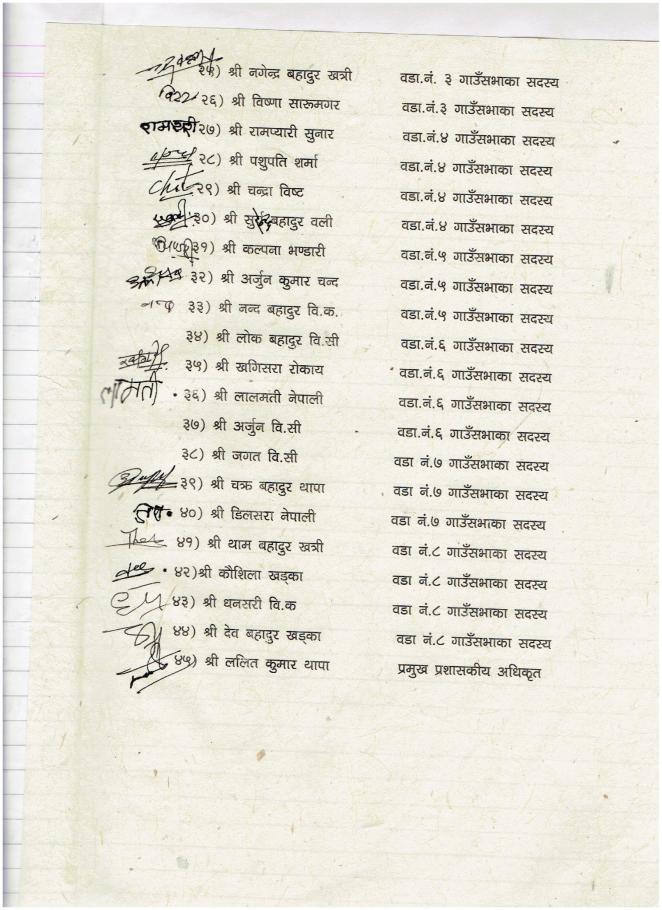 २५) श्री नगेन्द्र बहादुर खत्री वडा.नं. ३ गाउँसभाका सदस्य
२६) श्री विष्णा सारूमगर वडा.नं.३ गाउँसभाका सदस्य
२७) श्री रामप्यारी सुनार वडा.नं.४ गाउँसभाका सदस्य
२८) श्री पशुपति शर्मा वडा.नं.४ गाउँसभाका सदस्य
२९) श्री चन्द्रा विष्ट वडा.नं.४ गाउँसभाका सदस्य
३०) श्री बहादुर वली वडा.नं.४ गाउँसभाका सदस्य
३१) श्री कल्पना भण्डारी वडा.नं.५ गाउँसभाका सदस्य
३२) श्री अर्जुन कुमार चन्द वडा.नं.५ गाउँसभाका सदस्य
नन्द ३३) श्री नन्द बहादुर वि.क. वडा.नं.५ गाउँसभाका सदस्य
३४) श्री लोक बहादुर वि.सी वडा.नं.६ गाउँसभाका सदस्य
३५) श्री खगिसरा रोकाय वडा.नं.६ गाउँसभाका सदस्य
३६) श्री लालमती नेपाली वडा.नं.६ गाउँसभाका सदस्य
३७) श्री अर्जुन वि.सी वडा.नं.६ गाउँसभाका सदस्य
३८) श्री जगत वि.सी वडा नं.७ गाउँसभाका सदस्य
३९) श्री चक्र बहादुर थापा वडा नं.७ गाउँसभाका सदस्य
४०) श्री डिलसरा नेपाली वडा नं.७ गाउँसभाका सदस्य
४१) श्री थाम बहादुर खत्री वडा नं.८ गाउँसभाका सदस्य
४२)श्री कौशिला खड्का वडा नं.८ गाउँसभाका सदस्य
४३) श्री धनसरी वि.क वडा नं.८ गाउँसभाका सदस्य
४४) श्री देव बहादुर खड्का वडा नं.८ गाउँसभाका सदस्य
४५) श्री ललित कुमार थापा प्रमुख प्रशासकीय अधिकृत